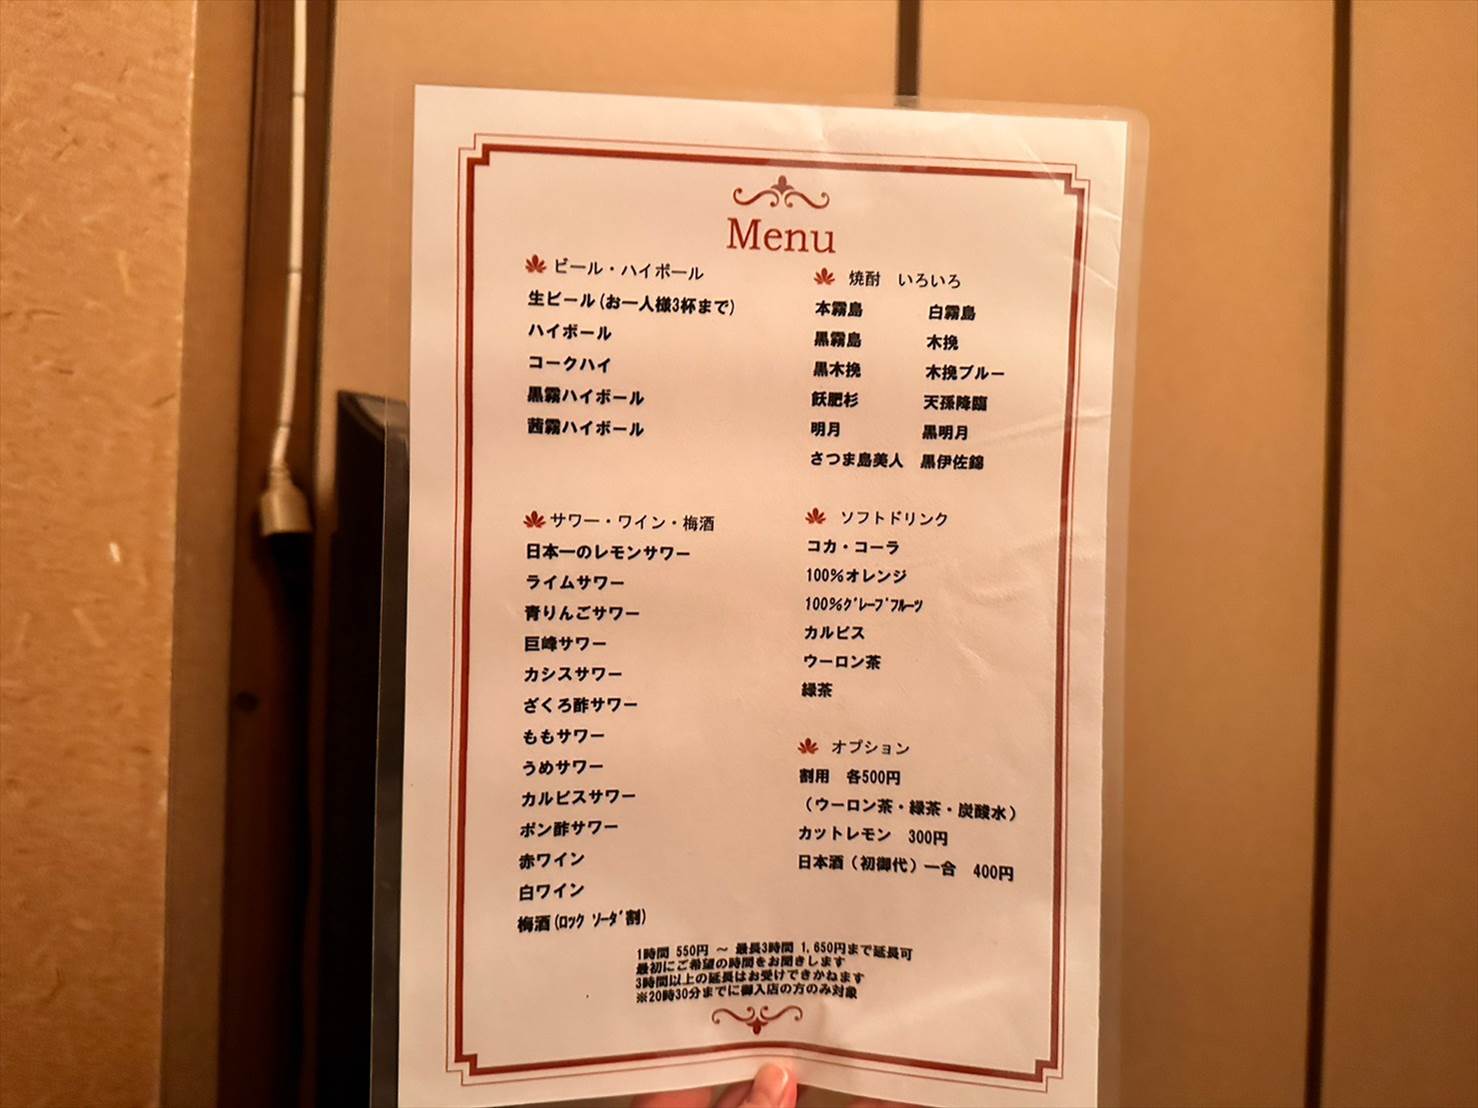 Menu
ビール・ハイボール
生ビール(お一人様3杯まで)
ハイボール
コークハイ
黒霧ハイボール
茜霧ハイボール
焼酎 いろいろ
本霧島 白霧島
黒霧島 木挽
黒木挽 木挽ブルー
飫肥杉 天孫降臨
明月 黒明月
さつま島美人 黒伊佐錦
サワー・ワイン・梅酒
日本一のレモンサワー
ライムサワー
青りんごサワー
巨峰サワー
カシスサワー
ざくろ酢サワー
ももサワー
うめサワー
カルピスサワー
ポン酢サワー
赤ワイン
白ワイン
梅酒(ﾛｯｸ ｿｰﾀﾞ割)
ソフトドリンク
コカ・コーラ
100%オレンジ
100%ｸﾞﾚｰﾌﾟﾌﾙｰﾂ
カルピス
ウーロン茶
緑茶
オプション
割用 各500円
(ウーロン茶・緑茶・炭酸水)
カットレモン 300円
日本酒(初御代)一合 400円
1時間 550円 ～ 最長3時間 1,650円まで延長可
最初にご希望の時間をお聞きします
3時間以上の延長はお受けできかねます
※20時30分までに御入店の方のみ対象